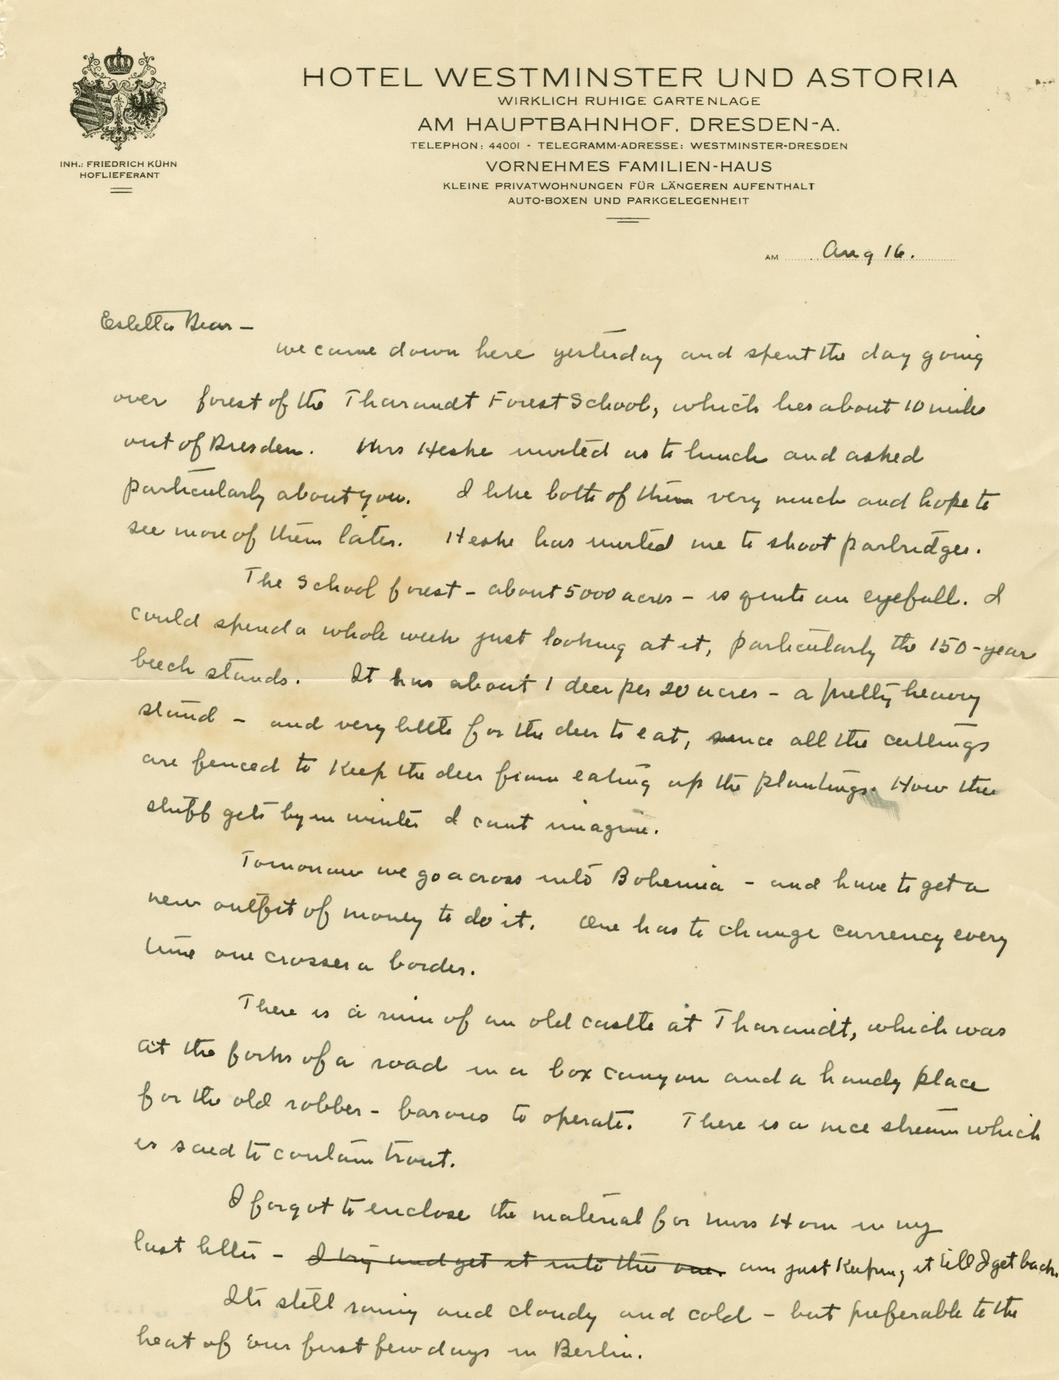 HOTEL WESTMINSTER UND ASTORIA
WIRKLICH RUHIGE GARTENLAGE
AM HAUPTBAHNHOF, DRESDEN-A.
TELEPHON: 44001 - TELEGRAMM-ADRESSE: WESTMINSTER-DRESDEN
VORNEHMES FAMILIEN-HAUS
KLEINE PRIVATWOHNUNGEN FÜR LÄNGEREN AUFENTHALT
AUTO-BOXEN UND PARKGELEGENHEIT
INH.: FRIEDRICH KÜHN
HOFLIEFERANT
AM Aug 16.
Estella Dear -
we came down here yesterday and spent the day going
over forest of the Tharandt Forest School, which lies about 10 miles
out of Dresden. Mrs Heske invited us to lunch and asked
particularly about you. I like both of them very much and hope to
see more of them later. Heske has invited me to shoot partridges.
The School forest - about 5000 acres - is quite an eyefull. I
could spend a whole week just looking at it, particularly the 150-year
beech stands. It has about 1 deer per 20 acres - a pretty heavy
stand - and very little for the deer to eat, since all the cuttings
are fenced to keep the deer from eating up the plantings. How the
stuff gets by in winter I cant imagine.
Tomorrow we go across into Bohemia - and have to get a
new outfit of money to do it. One has to change currency every
time one crosses a border.
There is a ruin of an old castle at Tharandt, which was
at the forks of a road in a box canyon and a handy place
for the old robber-barons to operate. There is a nice stream which
is said to contain trout.
I forgot to enclose the material for Miss Horn in my
last letter - I try and get it into this one. am just keeping it till I get back.
Its still rainy and cloudy and cold - but preferable to the
heat of our first few days in Berlin.